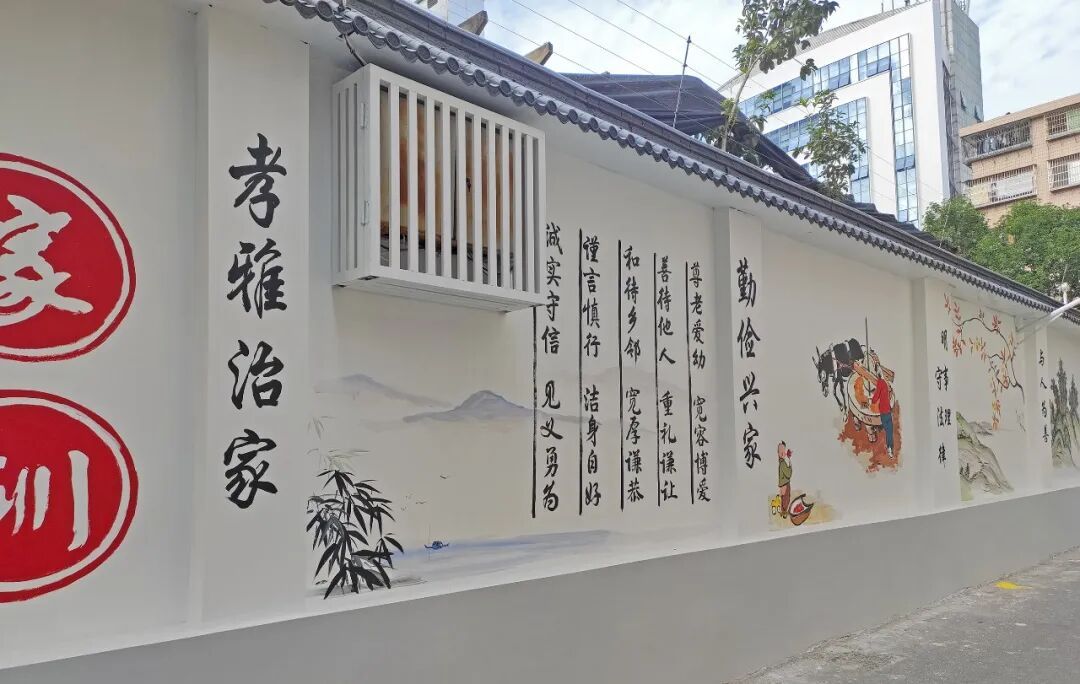 家
训
孝雅治家
尊老爱幼 宽容博爱
善待他人 重礼谦让
和待乡邻 宽厚谦恭
谨言慎行 洁身自好
诚实守信 见义勇为
勤俭兴家
明事理
守法律
与人为善